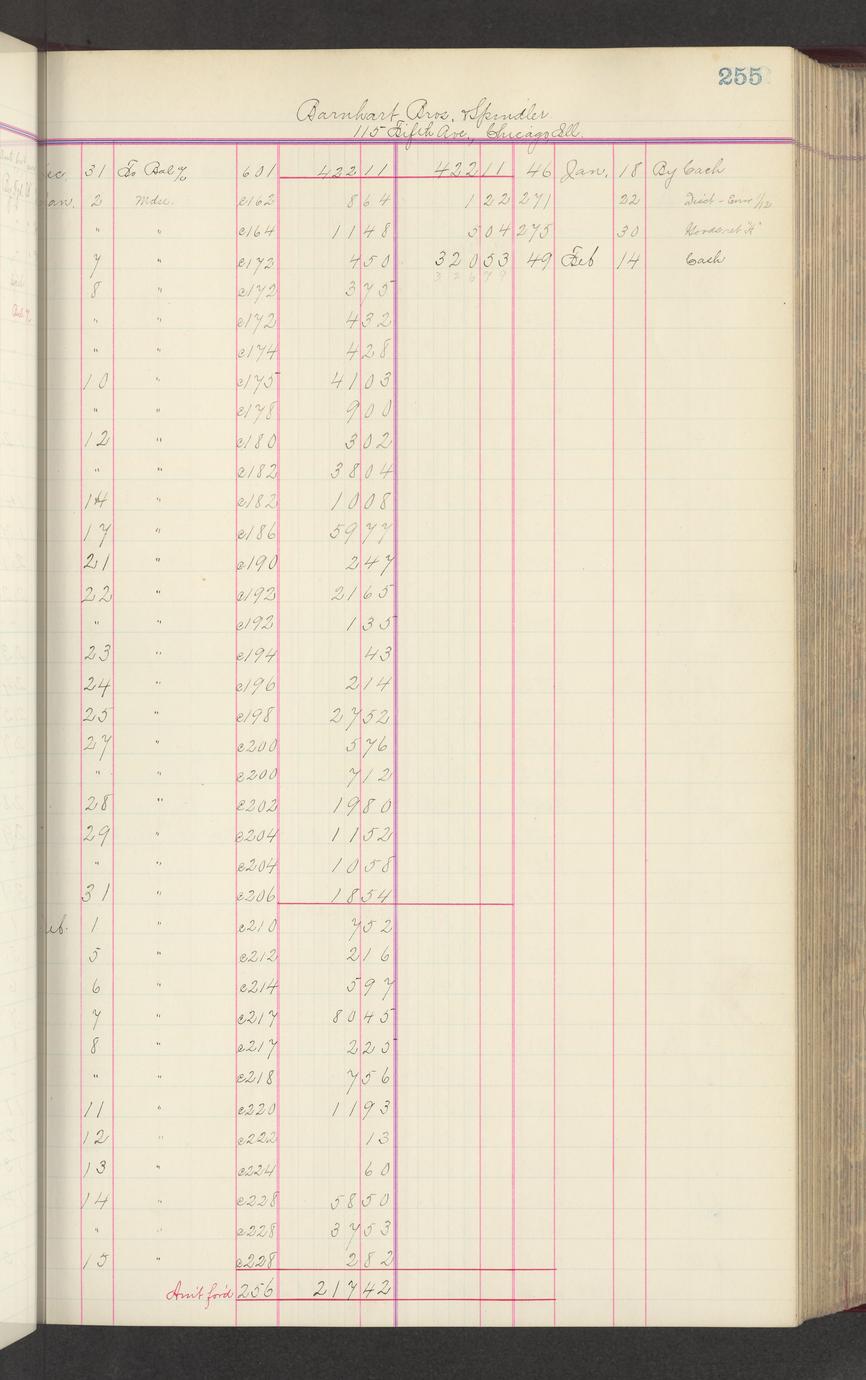 255
Barnhart Bros. & Spindler
115 Fifth Ave., Chicago, Ill.
ec. 31 To Bal % 601 422 11 422 11 46 Jan. 18 By Cash
an. 2 Mdse. c162 8 64 1 22 271 22 Disct - Error 1/12
" " c164 11 48 5 04 275 30 "A"
7 " c172 4 50 320 53 49 Feb 14 Cash
326 79
8 " c172 3 75
" " c172 4 32
" " c174 4 28
10 " c175 41 03
" " c178 9 00
12 " c180 3 02
" " c182 38 04
14 " c182 10 08
17 " c186 59 77
21 " c190 2 47
22 " c192 21 65
" " c192 1 35
23 " c194 43
24 " c196 2 14
25 " c198 27 52
27 " c200 5 76
" " c200 7 12
28 " c202 19 80
29 " c204 11 52
" " c204 10 58
31 " c206 18 54
eb. 1 " c210 7 52
5 " c212 2 16
6 " c214 5 97
7 " c217 80 45
8 " c217 2 25
" " c218 7 56
11 " c220 11 93
12 " c222 13
13 " c224 60
14 " c228 58 50
" " c228 37 53
15 " c228 2 82
Amt for'd 256 217 42